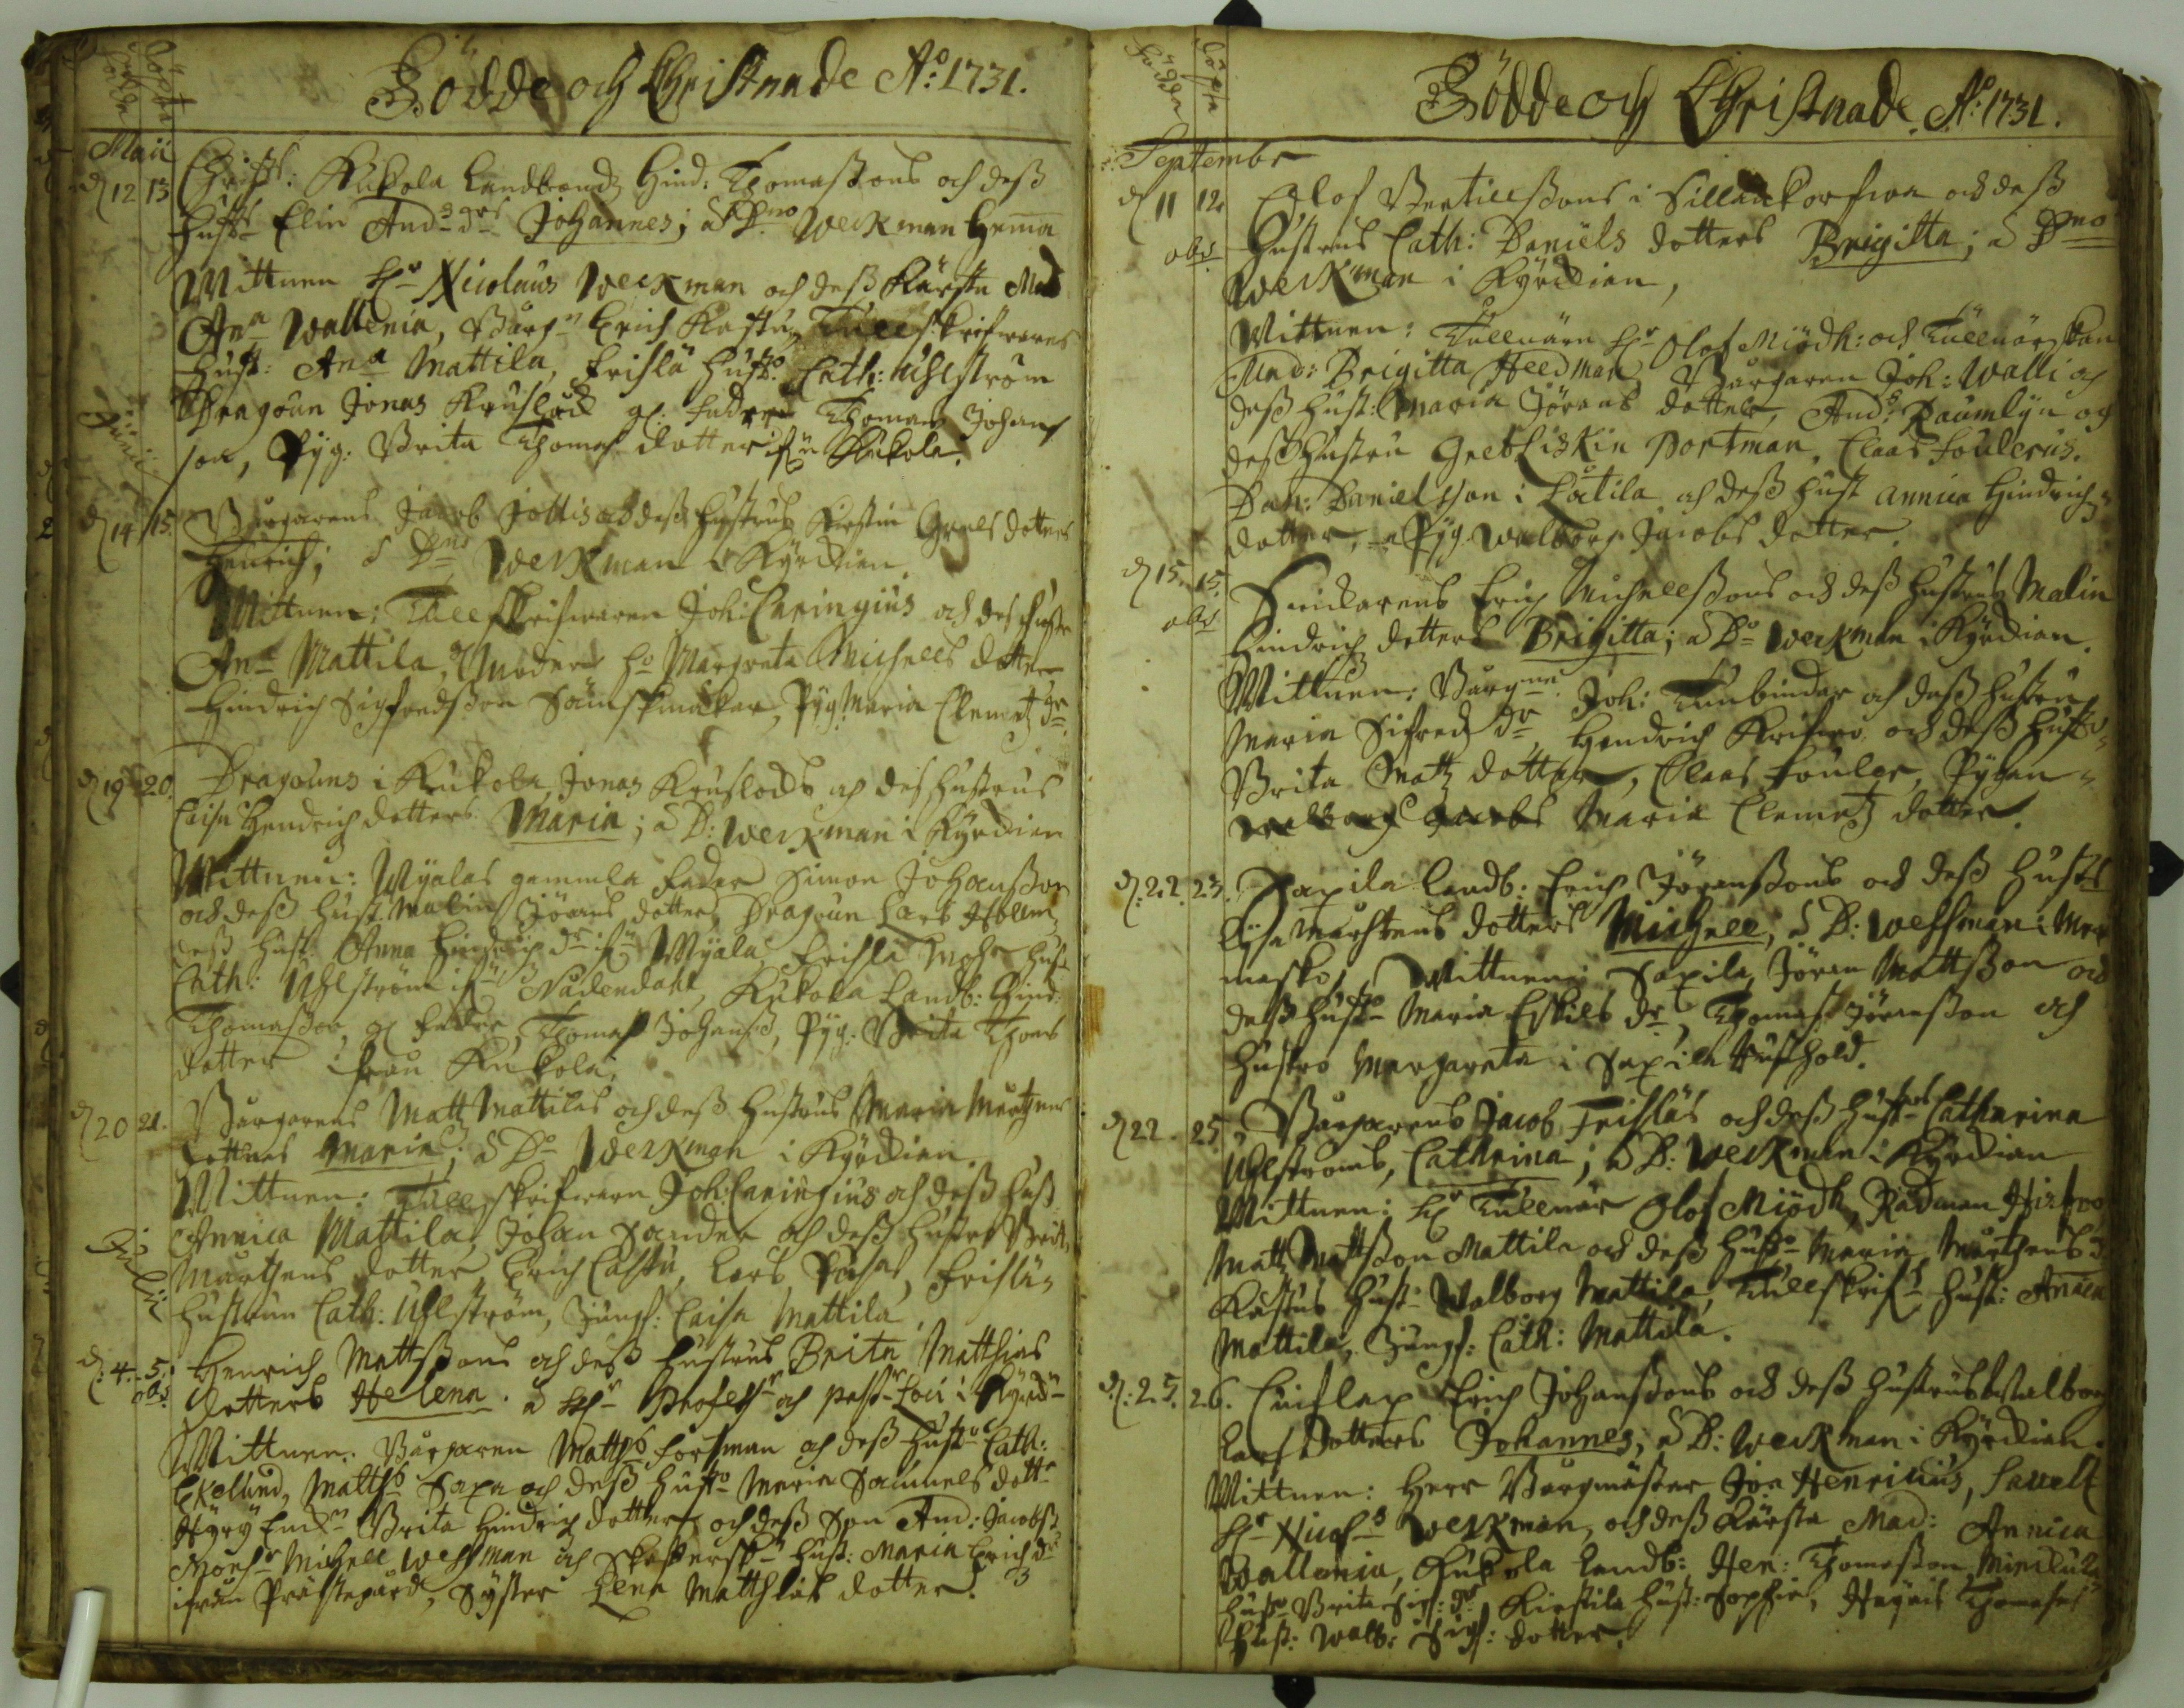 Födde och Christnade A:o 1731.
födde döpte
Maii
d 12 13 Christ: Kukola Landbond Hind: Thomassons och dess
Hust: Elin And: d:rs Johannes; a D:no Weckman hema
Wittnen H:r Nicolaus Weckman och dess Kärsta Mad
An:a Wallenia, Burg:n Erich Kastu, Tullskrifwarens
Hust: An:a Mattila, Frislä Hust: Cath: Uhlström
Dragoun Jonas Kruslock gl. fadren Thomas Johans
son, Pyg: Brita Thomas dotter ifr: Kukola.
Junii
d 14 15. Burgarens Jacob Jottis och dess hustrus Kirstin Grels dotters
Henrich; a D:no Weckman i Kyrckian.
Wittnen: Tullskrifwaren Joh: Caringius och des hustr
An:a Mattila, Moder H:o Margreta Michells dotter
Hindrich Sigfredsson Sämskmakar, Pyg: Maria Clemetz d:r
d 19 20. Dragouns i Kukola, Jonas Kruslocks och dess hustrus
Caisa Hendrich dotters Maria; a D: Weckman i Kyrckian
Wittnen: Myälas gammla fader Simon Johansson
och dess hust Malin Jörens dotter, Dragoun Lars
dess hust: Anna Hindrich d:r ifr: Myäla, Frislä Mohr hust
Cath: Uhlström ifr: Nådendahl, Kukola Landb: Hind:
Thomasson, gl fadren, Thomas Johanss, Pyg: Brita Thoms
dotter ifrån Kukola.
d 20 21. Burgarens Matt Mattilas och dess Hustrus Maria Mårthens
dottres Maria; a D:o Weckman i Kyrckian.
Wittnen: Tullskrifwaren Joh: Caringius och dess hust
Annica Mattila, Johan Sander och dess hustru Brita
Marthens dotter, Erich Castu, Lars Pahas, Frislä
hustrun Cath: Uhlström, Jungf: Caisa Mattila
Julii
d: 4. 5. Henrich Mattssons och dess hustrus Brita Matthias
obs. dotters Helena. a H:r Profess:r och past:r Loci i Kyrck
Wittnen: Burgaren Matths Forsman och dess Hust:o Cath:
Ekelund, Matths Saxa och dess hust:o Maria Samuels dott:r
Hyry Enck:n Brita Hindrich dotter och dess Son And: Jacobss
Mons:r Michell Wessman och hust: Maria Erich d:r
ifrån Prästegård, Syster Lena Matthiæ dotter.
Födde och Christnade A:o 1731.
födde döpte
Septembr
d 11 12. Olof Bertillssons i Sillankorfwa och dess
obs. Hustrus Cath: Daniels dotters Brigitta; a D:no
Weckman i Kyrckian,
Wittnen: Tullnärn H:r Olof Miödh: och Tullnärskan
Mad: Brigitta Heedman, Burgaren Joh: Walli och
dess Hust: Maria Jörens dotter, And:s Daumlyn och
dess hustru Gretliskin Portman, Claas Foulerus.
Dan: Danielsson i Latila och dess hust Annica Hindrichs
dotter, Pyg. Walborg Jacobs dotter.
d 15. 15. Snickarens Erich Michellssons och dess hustrus Malin
obs Hindrich dotters Brigitta; a D:o Weckman i Kyrckian.
Wittnen: Burg:ne Joh: Tunbinder och dess hustru
Maria Sifredz d:r Hendrich och dess hust:o
Brita Matz dotter, Claas Fouler, Pygan
Walborg Jacobs Maria Clemetz dotter.
d: 22. 23. Saxila Landb: Erich Jöranssons och dess hust:s
Lisa Marthens dotters Michell, a D: Wessman i Meri
masko, Wittnen: Saxila, Jören Mattsson och
dess Hust:o Maria Eskils d:r, Thomas Jöransson och
hustro Margareta i Saxila Hushold.
d 22. 25. Burgarens Jacob Frisläs och dess hustrus Catharina
Uhlströms, Catharina; a D: Weckman i Kyrckian
Wittnen: H:r Tullnär Olof Miödh, Rådman
Matz Mattsson Mattila och dess hust:o Maria Mårthens d
Kastus hust: Walborg Mattila, Tullskrif: hust: Anica
Mattila, Jungf: Cath: Mattila.
d: 25. 26. Luislax Erich Johanssons och dess hustrus Walborg
Lars dotters Johannes; a D: Weckman i Kyrckian.
Wittnen: Herr Burgmäster Jon Henricius,
H:r Nicol:s Weckman, och dess Kärsta Mad: Annica
Wallenia, Kukola Landb: Hen: Thomasson,
Hust: Brita Sig: d:r Kirstila hust: Sophia, Thomas
Hust: Walb: Sigf: dotter.